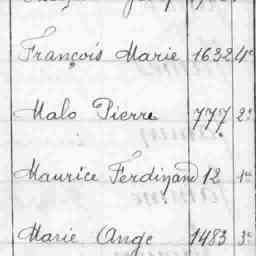 François Marie 1632 4e
Malo Pierre 777 2e
Maurice Ferdinand 12 1e
Marie Ange 1483 3e